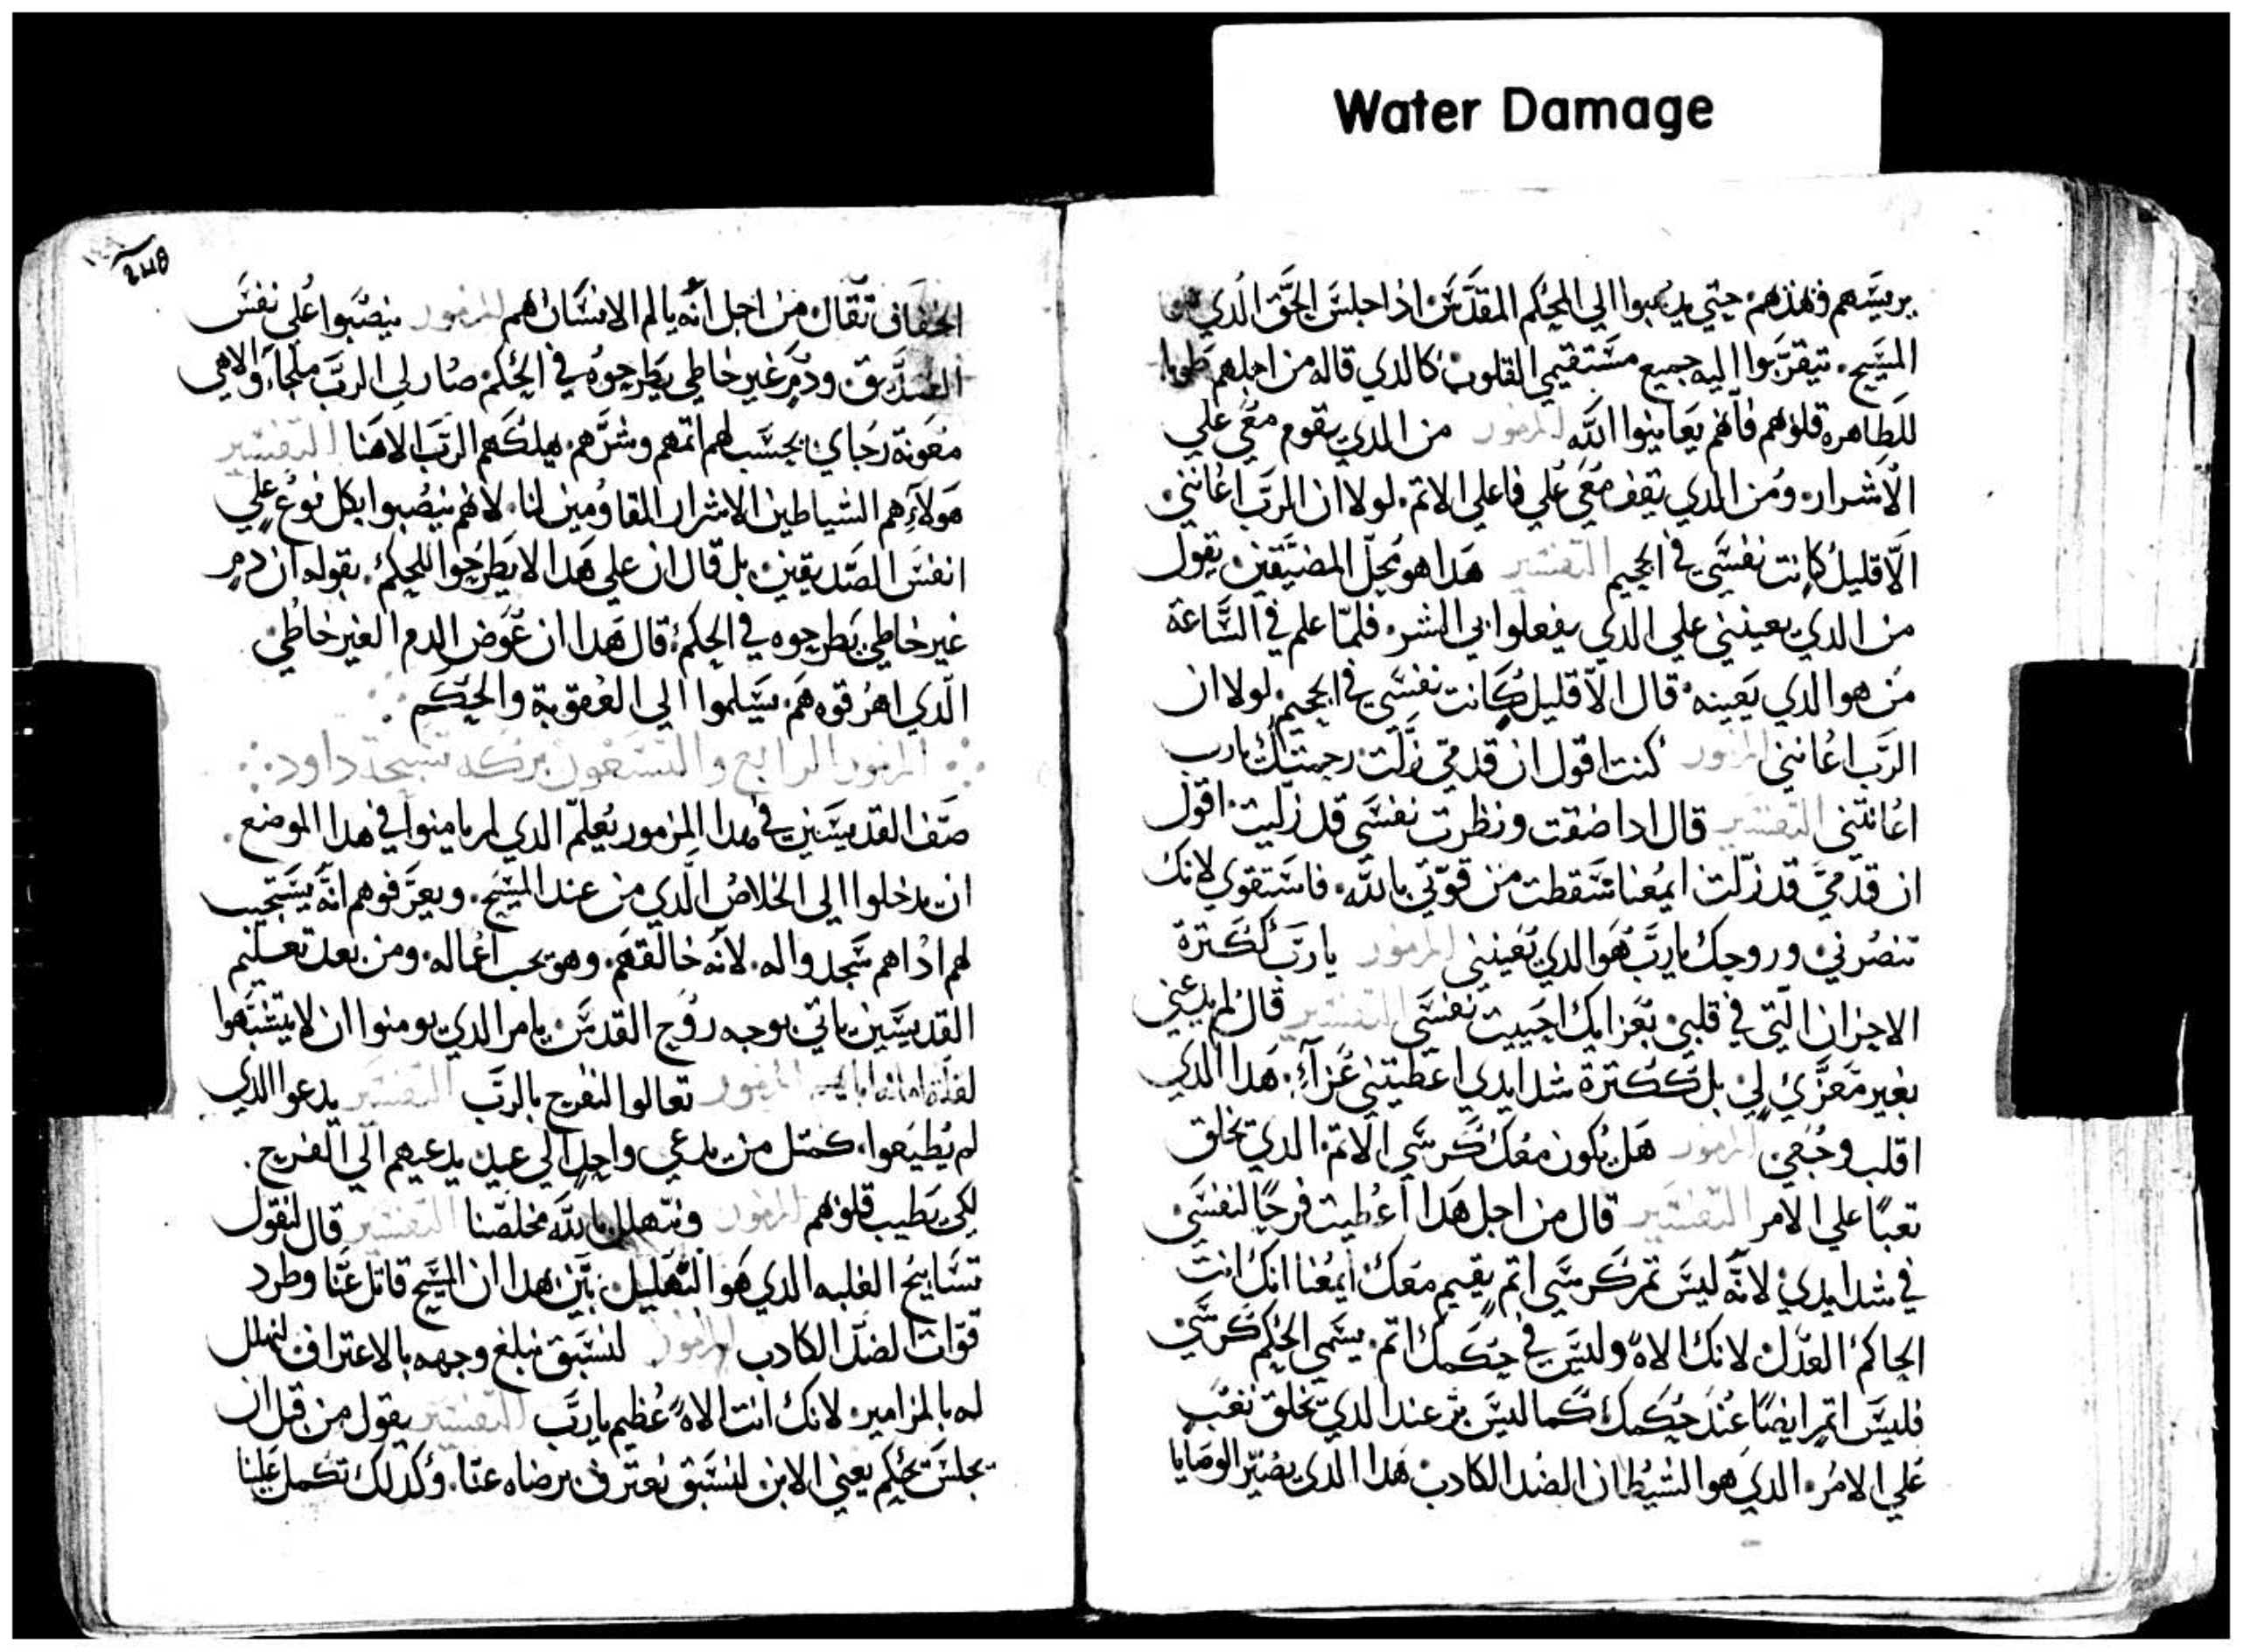 Water Damage
بريتهم فهذهم حتي يدعبوا الي الحكم المقدس اذا جلس الحق الدي
المسيح. تيقربوا اليه جميع مستقيمي القلوب كالدي قاله من اجلهم طوبا
للطاهره قلوبهم فأنهم يعاينوا الله المزمور من الدي يقوم معي علي
الأشرار ومن الدي يقف معي علي فاعلي الاتم. لولا ان الرب اعانني
الا قليل كانت نفسي في الجحيم التفسير هدا هو محل المضيقين يقول
من الدي يعينني علي الدي يفعلوا بي الشر. فلما علم في الساعة
من هو الدي يعينه قال الا قليل كانت نفسي في الجحيم لولا ان
الرب اعانني المزمور كنت اقول ان قدمي زلت رحمتك يارب
اعانتني التفسير قال ادا ضقت ونظرت نفسي قد زليت اقول
ان قدمي قد زلت ايمعنا سقطت من قوتي بالله. فاستقوي لانك
تنصرني وروحك يارب هو الدي تعينني المزمور يارب لكترة
الاحزان التي في قلبي بعزايك احييت نفسي التفسير قال لم يدعني
بغير معزي لي بل ككترة شدايدي اعطيتني عزآء هدا الدي
اقلب وجعي المزمور هل يكون معك كرسي الاتم الدي تخلق
تعبا علي الامر التفسير قال من اجل هدا اعطيت فرحا لنفسي
في شدايدي لانه ليس تم كرسي اتم يقيم معك ايمعنا انك انت
الحاكم العدل لانك الاه وليس في حكمك اتم. يسمي الحكم كرسي
فليس اتم ايضا عند حكمك كما ليس بر عند الدي تخلق تعب
علي الامر الدي هو الشيطان الضد الكادب هدا الدي يصير الوصايا
248
الخفاف تقال من اجل انه يالم الانسان هم المزمور ينصبوا علي نفس
الصديق ودم غير خاطي يطرحوه في الحكم صار لي الرب ملجاء والاهي
معونة رجاي يحسب لهم اتمهم وشرهم يهلكهم الرب الاهنا التفسير
هولاءهم الشياطين الاشرار المقاومين لنا. لانهم ينصبوا بكل نوع علي
انفس الصديقين بل قال ان علي هدا الا يطرحوا للحكم. بقوله ان دم
غير خاطي يطرحوه في الحكم قال هدا ان عوض الدم الغير خاطي
الدي اهرقوه هم يسلموا الي العقوبة والحكم
المزمور الرابع والتسعون بركة تسبحة داود
صف القديسين في هدا المزمور يعلم الدي لم يامنوا في هدا الموضع
ان يدخلوا الي الخلاص الدي من عند المسيح. ويعرفوهم انه يستجيب
لهم اداهم سجدوا له. لانه خالقهم. وهو يحب اعماله. ومن بعد تعليم
القديسين ياتي بوجه روح القدس يامر الدي يومنوا ان لا يتشبهوا
المزمور تعالوا النفرح بالرب التفسير يدعوا الدي
لم يطيعوا. كمتل من يدعي واحد الي عيد يدعيهم الي الفرح.
لكي يطيب قلوبهم المزمور ونتهلل بالله مخلصنا التفسير قال لنقول
تسابيح الغلبه الدي هو التهليل بين هدا ان المسيح قاتل عنا وطرد
قوات الضد الكادب المزمور لنسبق نبلغ وجهه بالاعتراف لنهلل
له بالمزامير لانك انت الاه عظيم يارب التفسير يقول من قبل ان
تجلس تحكم يعني الابن لنسبق نعترف برضاه عنا. وكدلك تكمل علينا